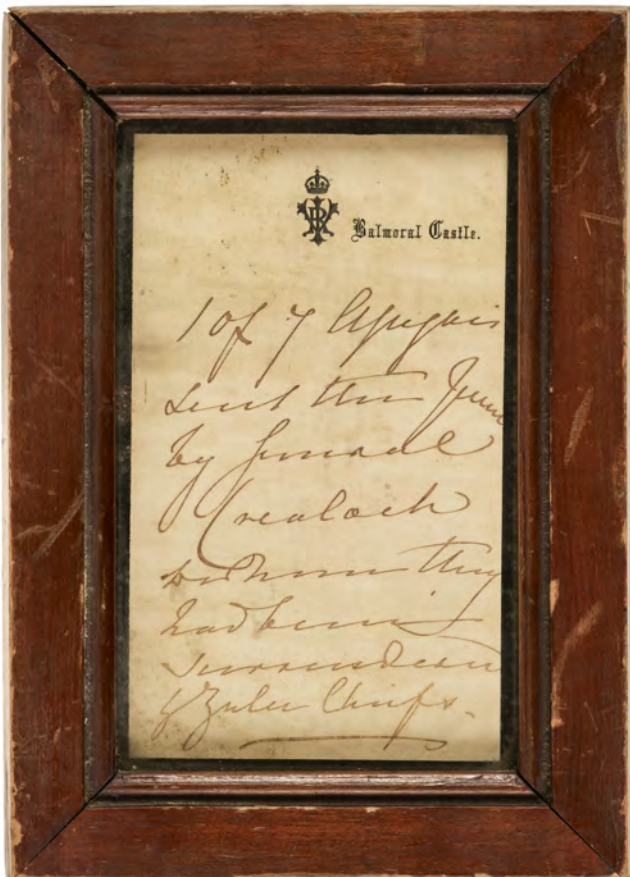 Balmoral Castle.
1 of 7 Assegais
sent the Queen
by General
Crealock
to whom they
had been
surrendered
by Zulu Chiefs.